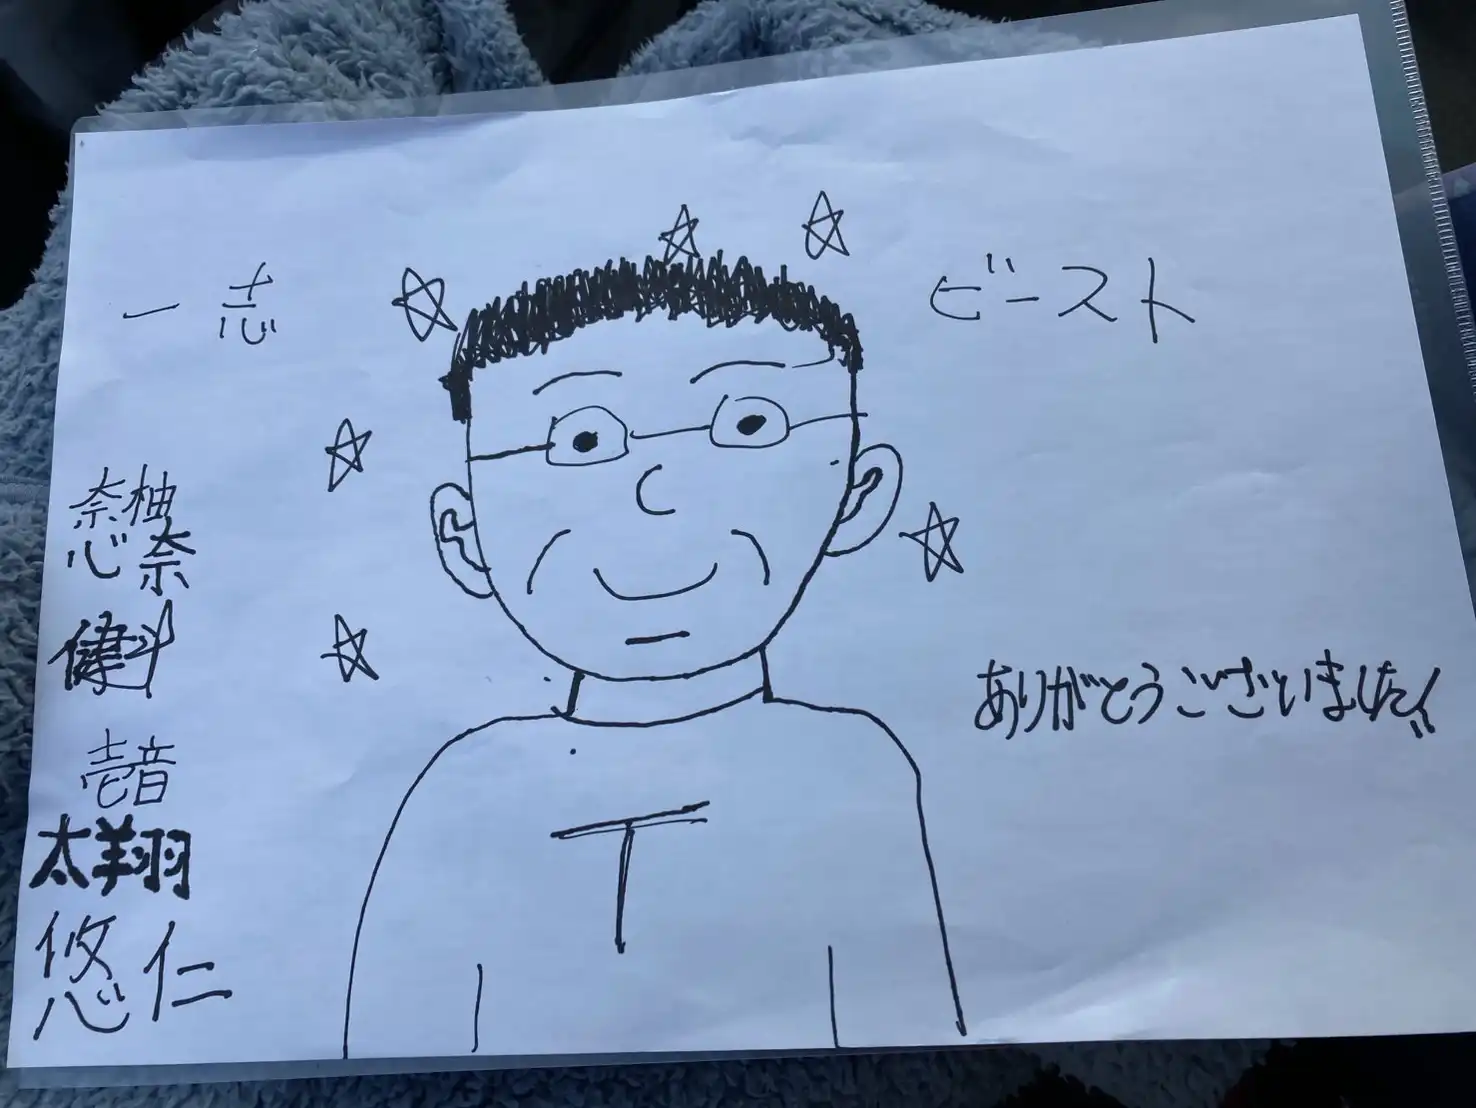 一志
ビースト
奈柚
心奈
健斗
壱音
太翔
悠仁
T
ありがとうございました!!